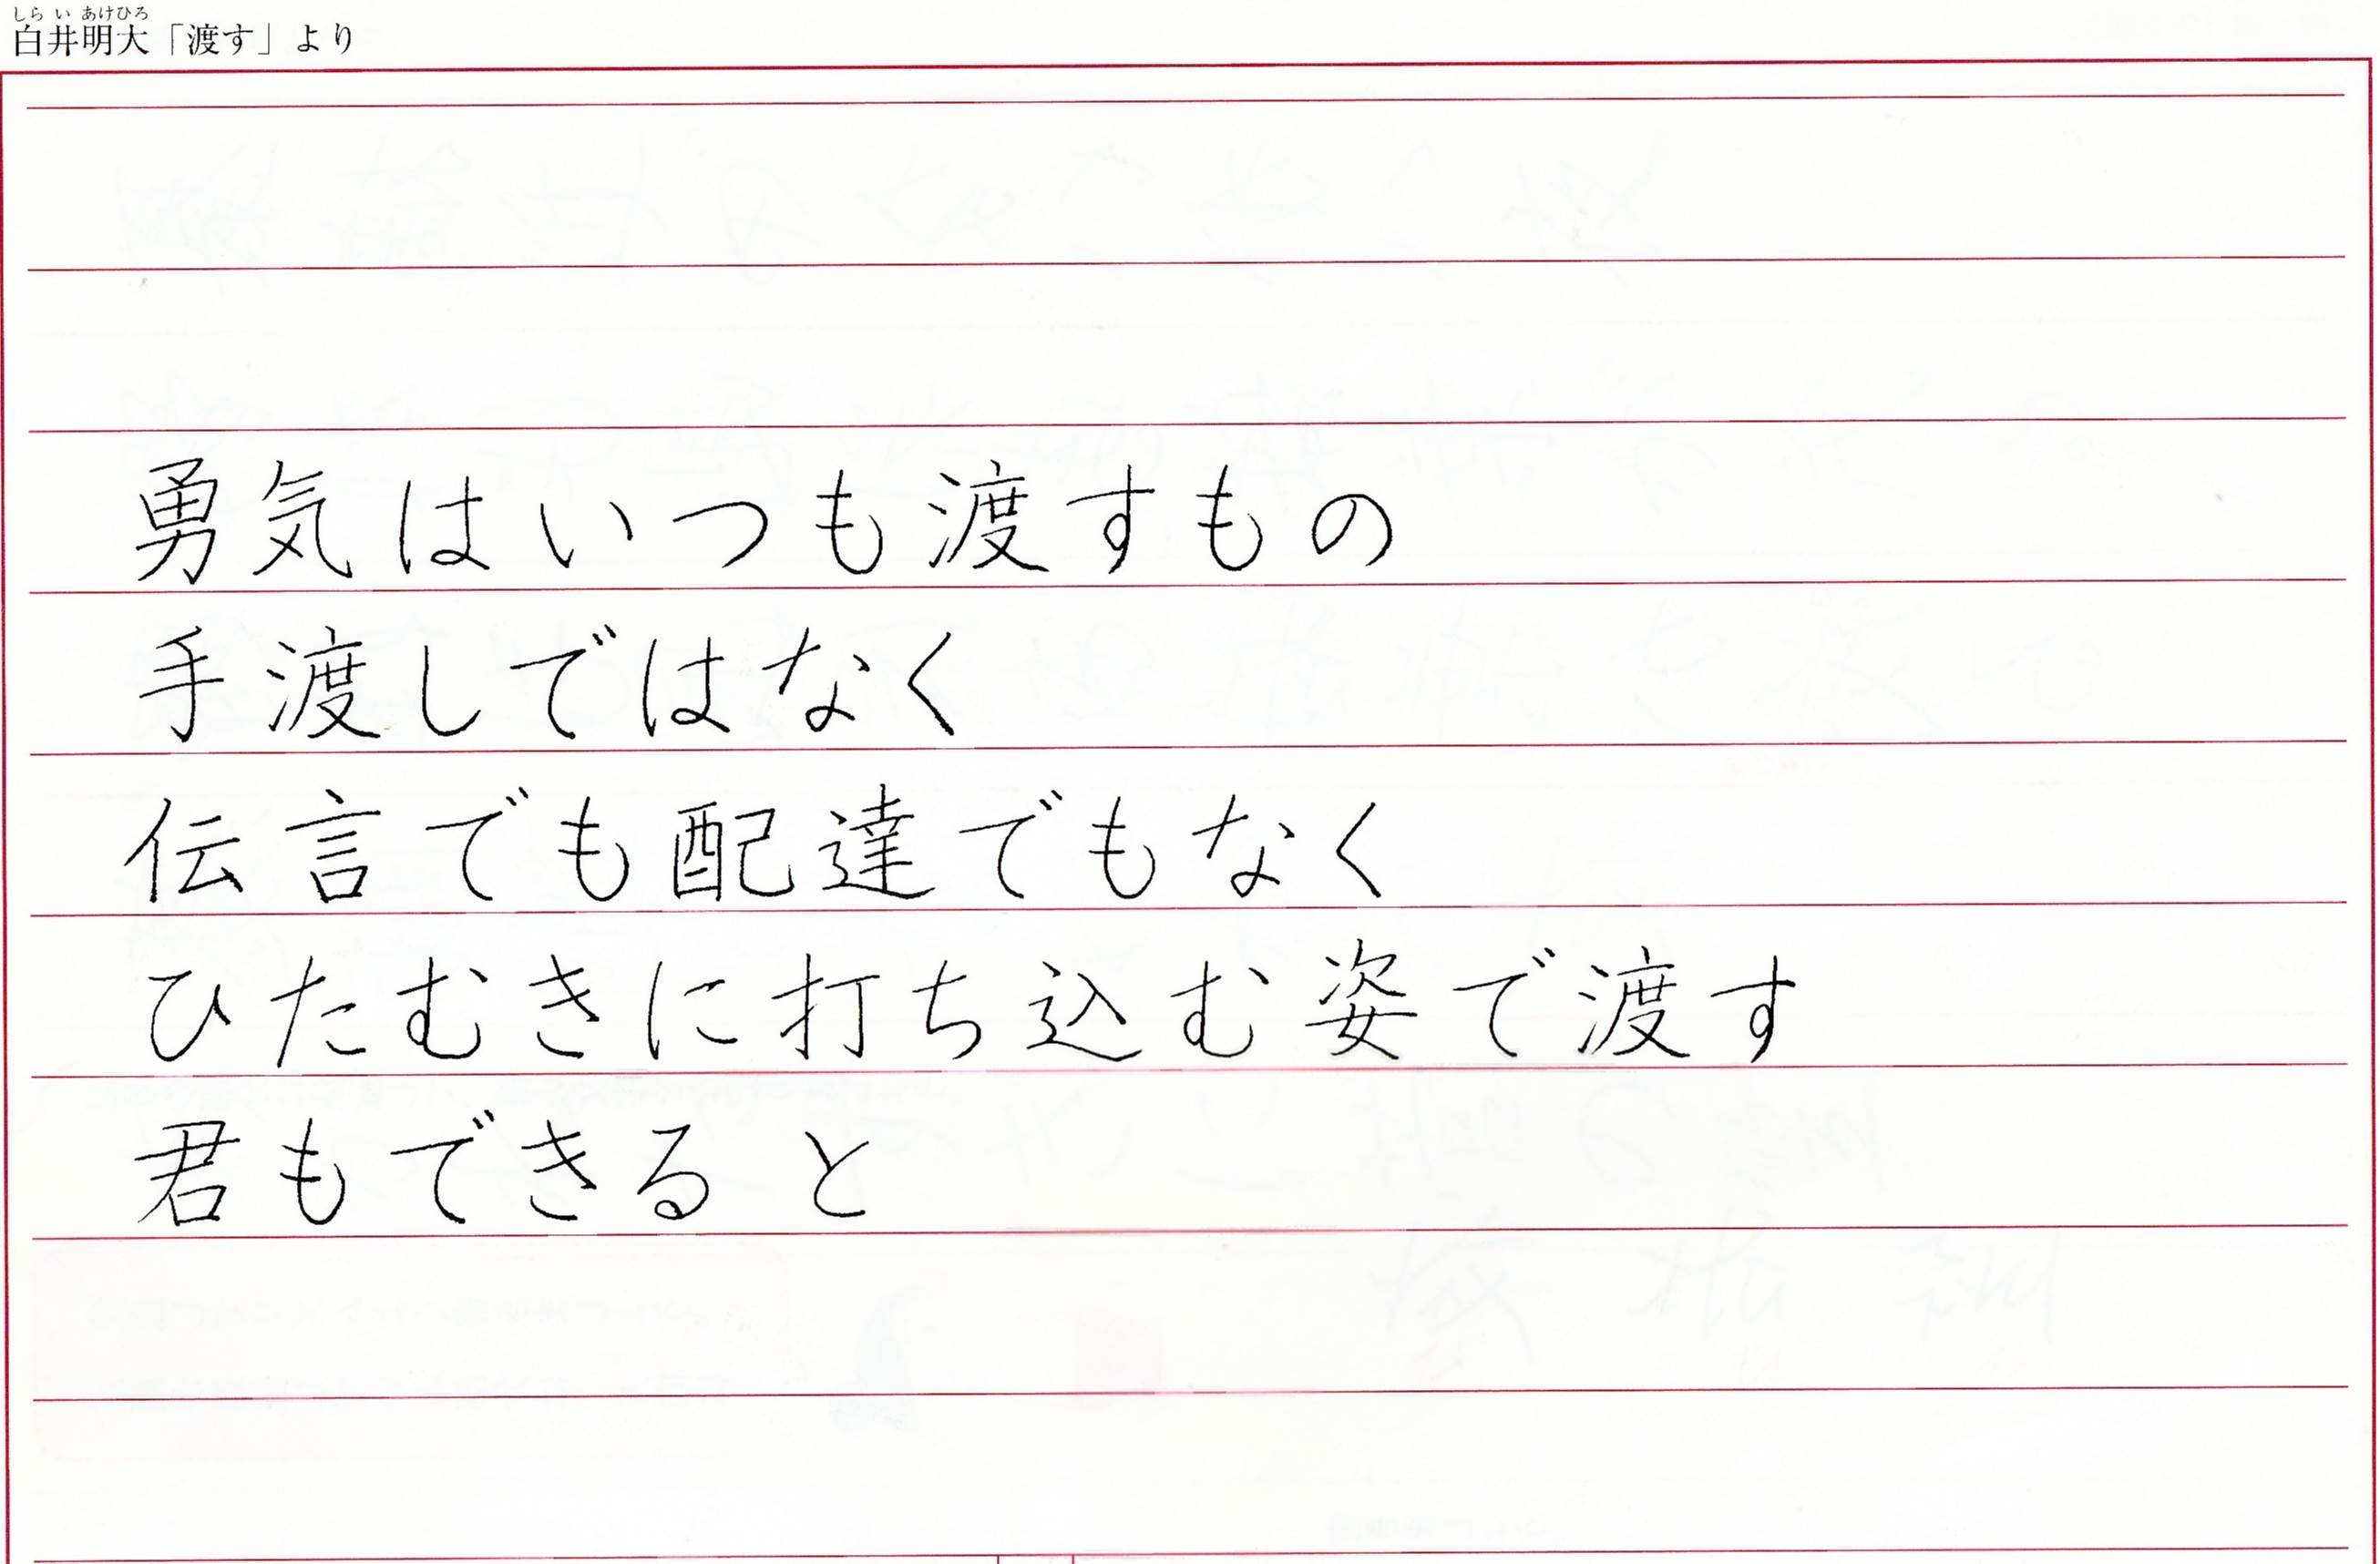 しらいあけひろ
白井明大「渡す」より
勇気はいつも渡すもの
手渡しではなく
伝言でも配達でもなく
ひたむきに打ち込む姿で渡す
君もできる と